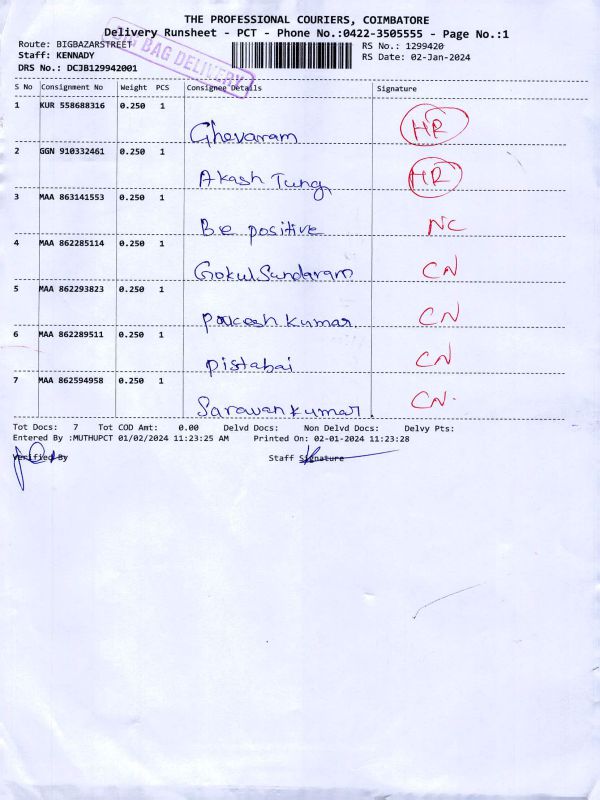 THE PROFESSIONAL COURIERS, COIMBATORE
Delivery Runsheet - PCT - Phone No.:0422-3505555 - Page No.:1
Route: BIGBAZARSTREET
RS No.: 1299420
Staff: KENNADY
RS Date: 02-Jan-2024
DRS No.: DCJB129942001
BIG BAG DELIVERY
S No Consignment No Weight PCS Consignee Details Signature
1 KUR 558688316 0.250 1
Ghevaram HR
2 GGN 910332461 0.250 1
Akash Tung HR
3 MAA 863141553 0.250 1
Be positive NC
4 MAA 862285114 0.250 1
Gokul Sundaram CN
5 MAA 862293823 0.250 1
Kumar CN
6 MAA 862289511 0.250 1
Pistabai CN
7 MAA 862594958 0.250 1
Saravankumar. CN.
Tot Docs: 7 Tot COD Amt: 0.00 Delvd Docs: Non Delvd Docs: Delvy Pts:
Entered By :MUTHUPCT 01/02/2024 11:23:25 AM Printed On: 02-01-2024 11:23:28
Verified By Staff Signature